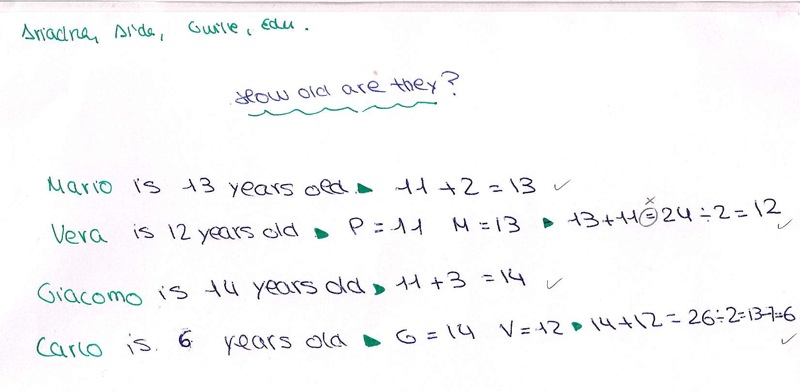 Ariadna, Aida, Guille, Edu.
How old are they?
Mario is 13 years old ▶ 11 + 2 = 13 ✓
Vera is 12 years old ▶ P = 11 M = 13 ▶ 13 + 11 = 24 ÷ 2 = 12 ✓
Giacomo is 14 years old ▶ 11 + 3 = 14 ✓
Carlo is. 6 years old ▶ G = 14 V = 12 ▶ 14 + 12 = 26 ÷ 2 = 13 - 7 = 6 ✓